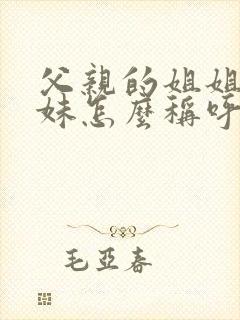 父親的姐姐
妹怎麼稱呼
毛亞春